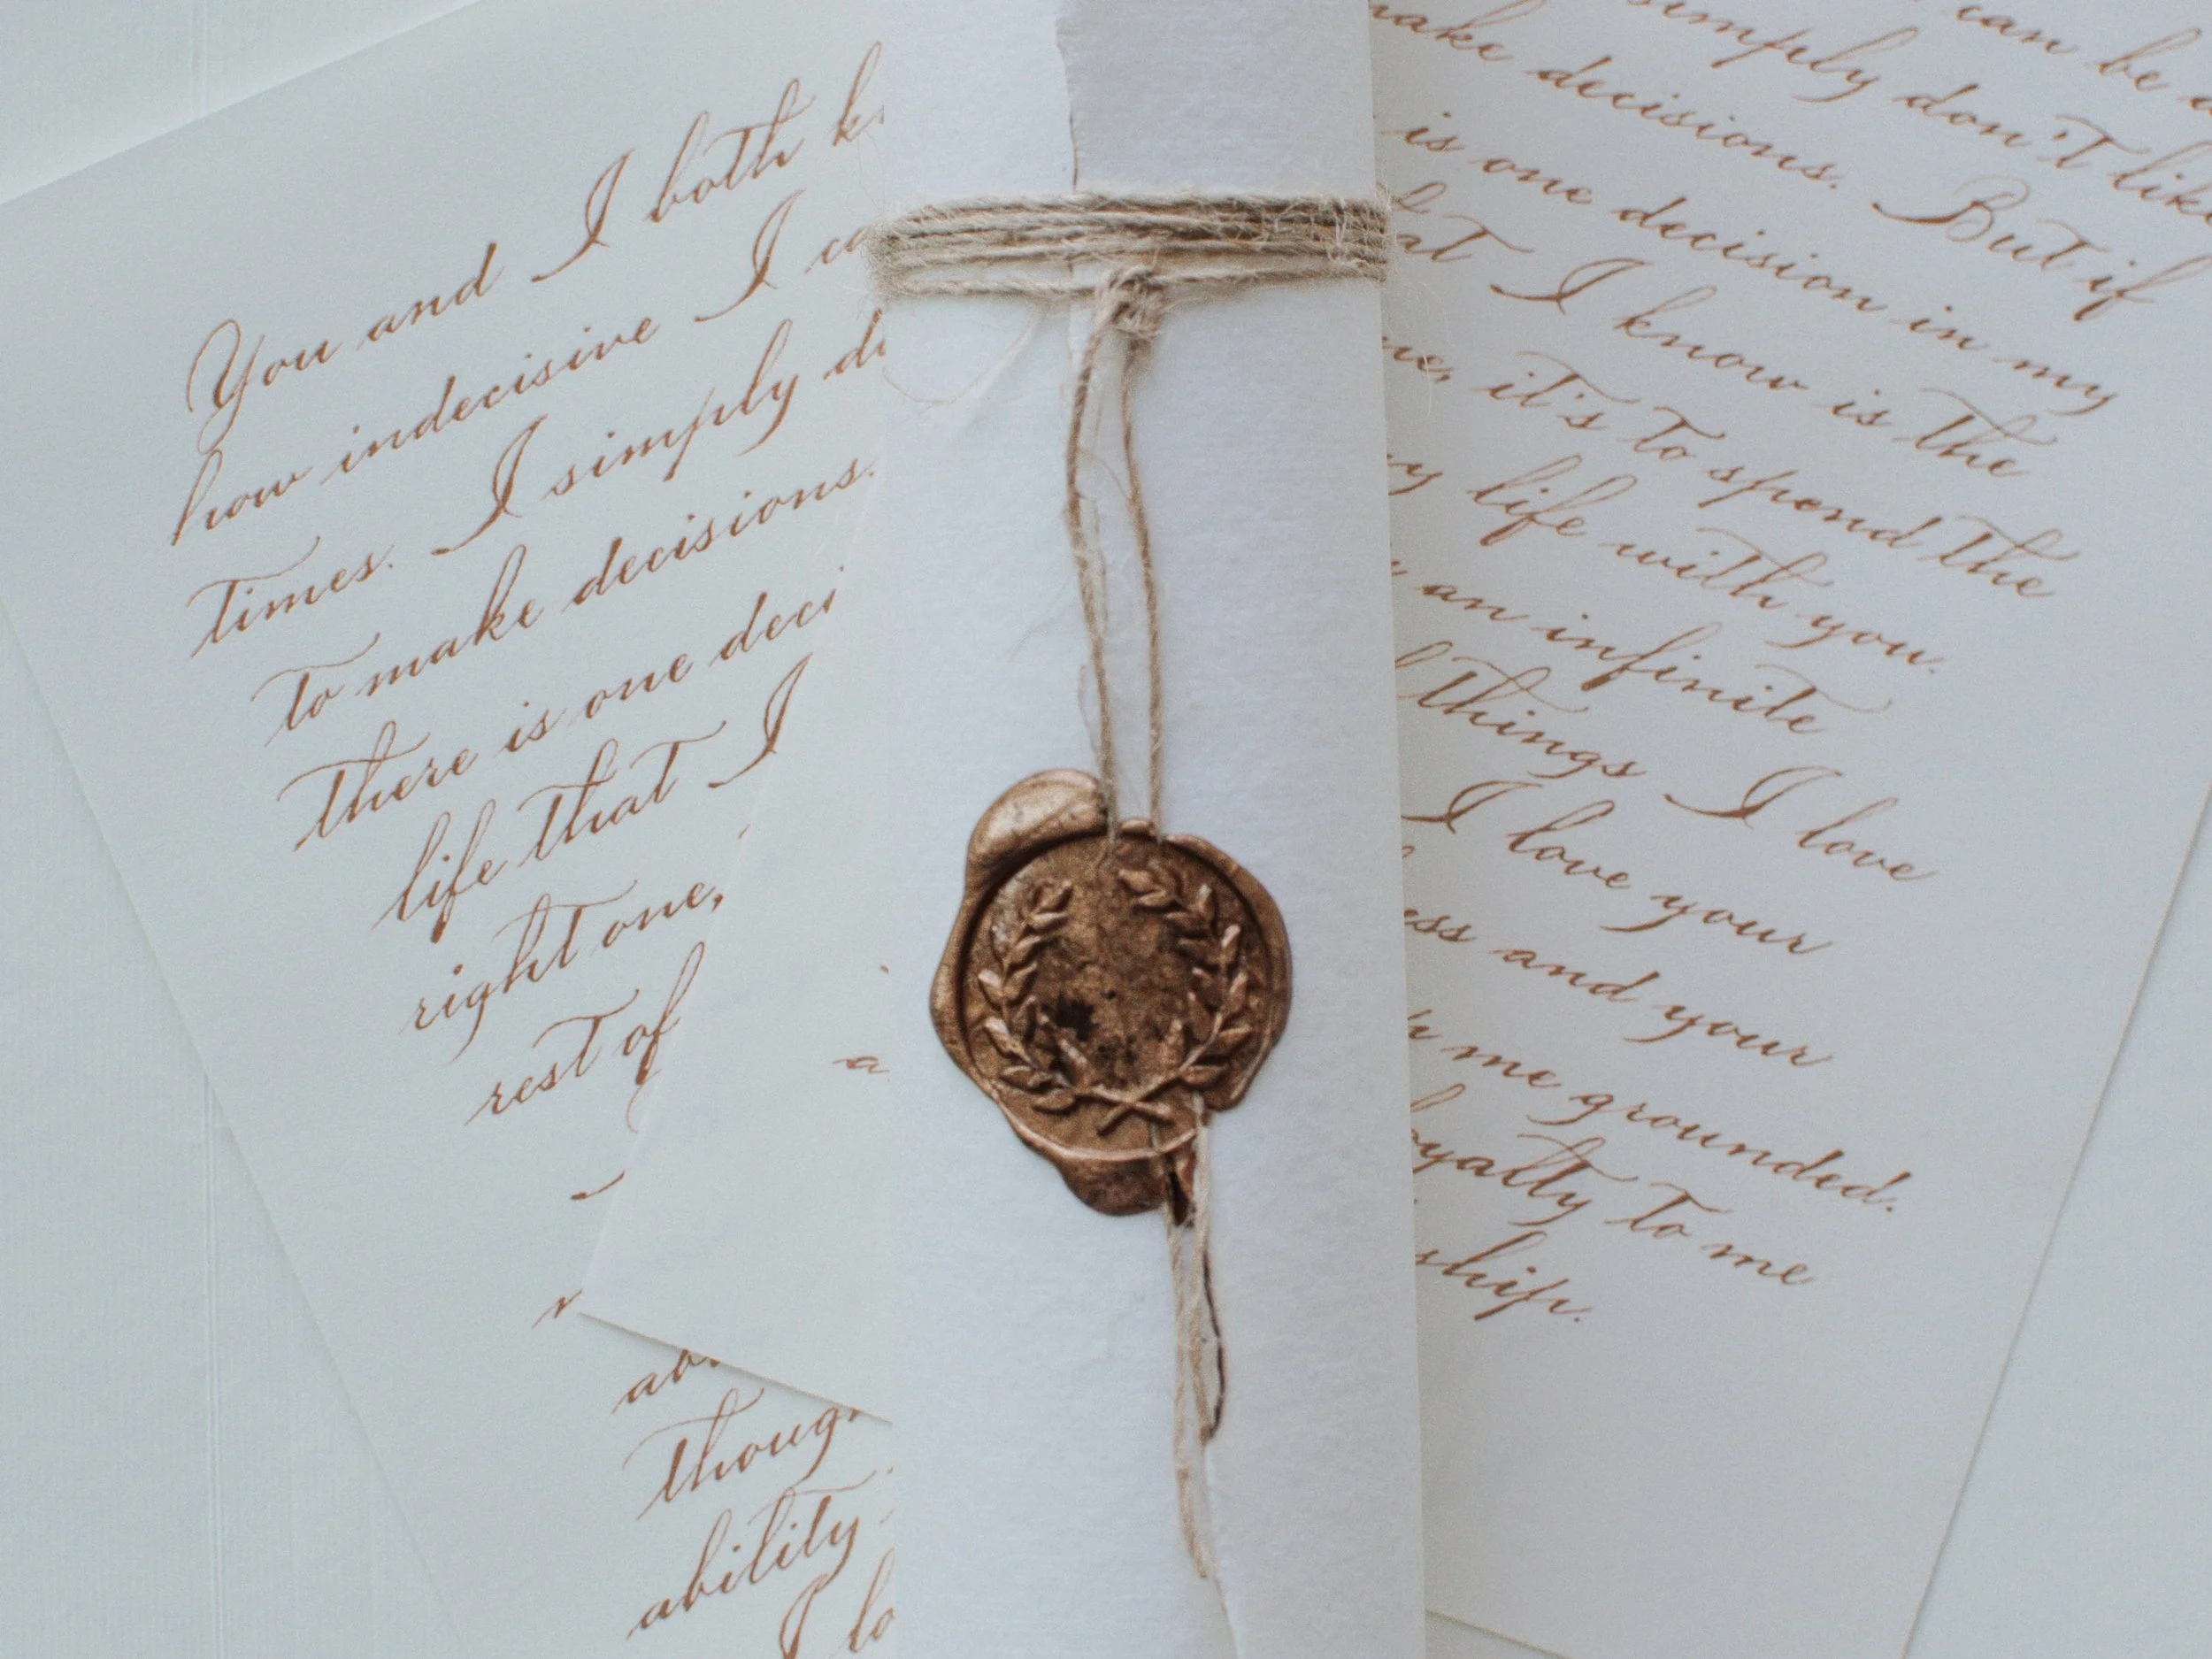 You and I both
how indecisive I
times. I simply
to make decisions.
There is one
life that I
right one,
rest of
a
though
ability
I
can be
simply don't like
make decisions. But if
is one decision in my
I know is the
it's to spend the
life with you.
an infinite
things I love
I love your
and your
me grounded.
loyalty to me